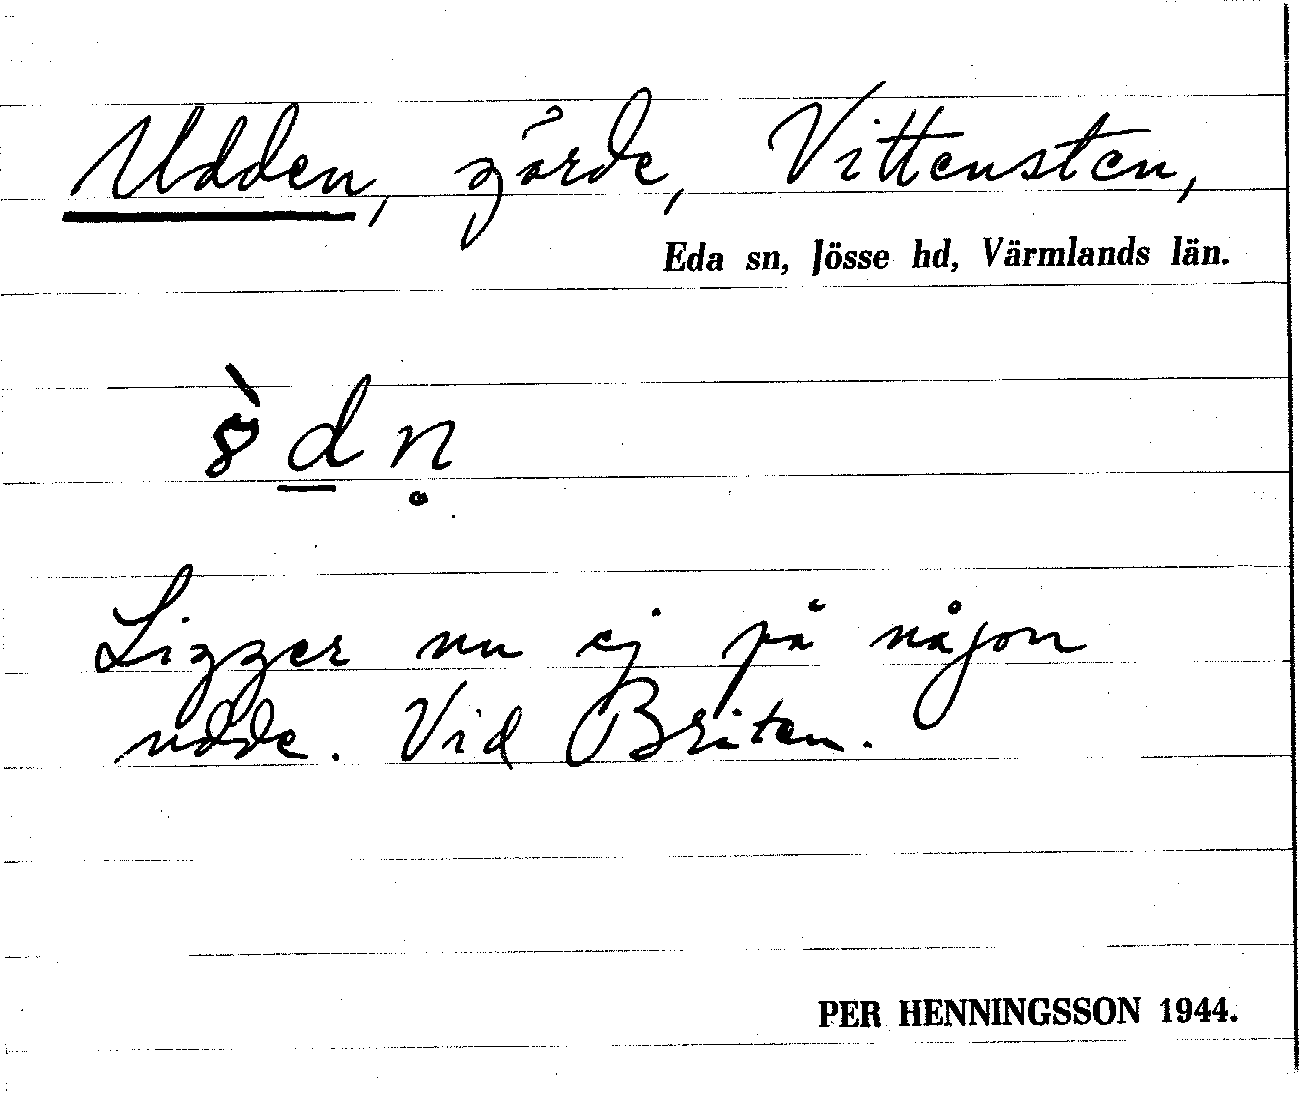 Udden, gärde, Vittensten,
Eda sn, Jösse hd, Värmlands län.
Ligger nu ej på någon
udde. Vid Bråten.
PER HENNINGSSON 1944.